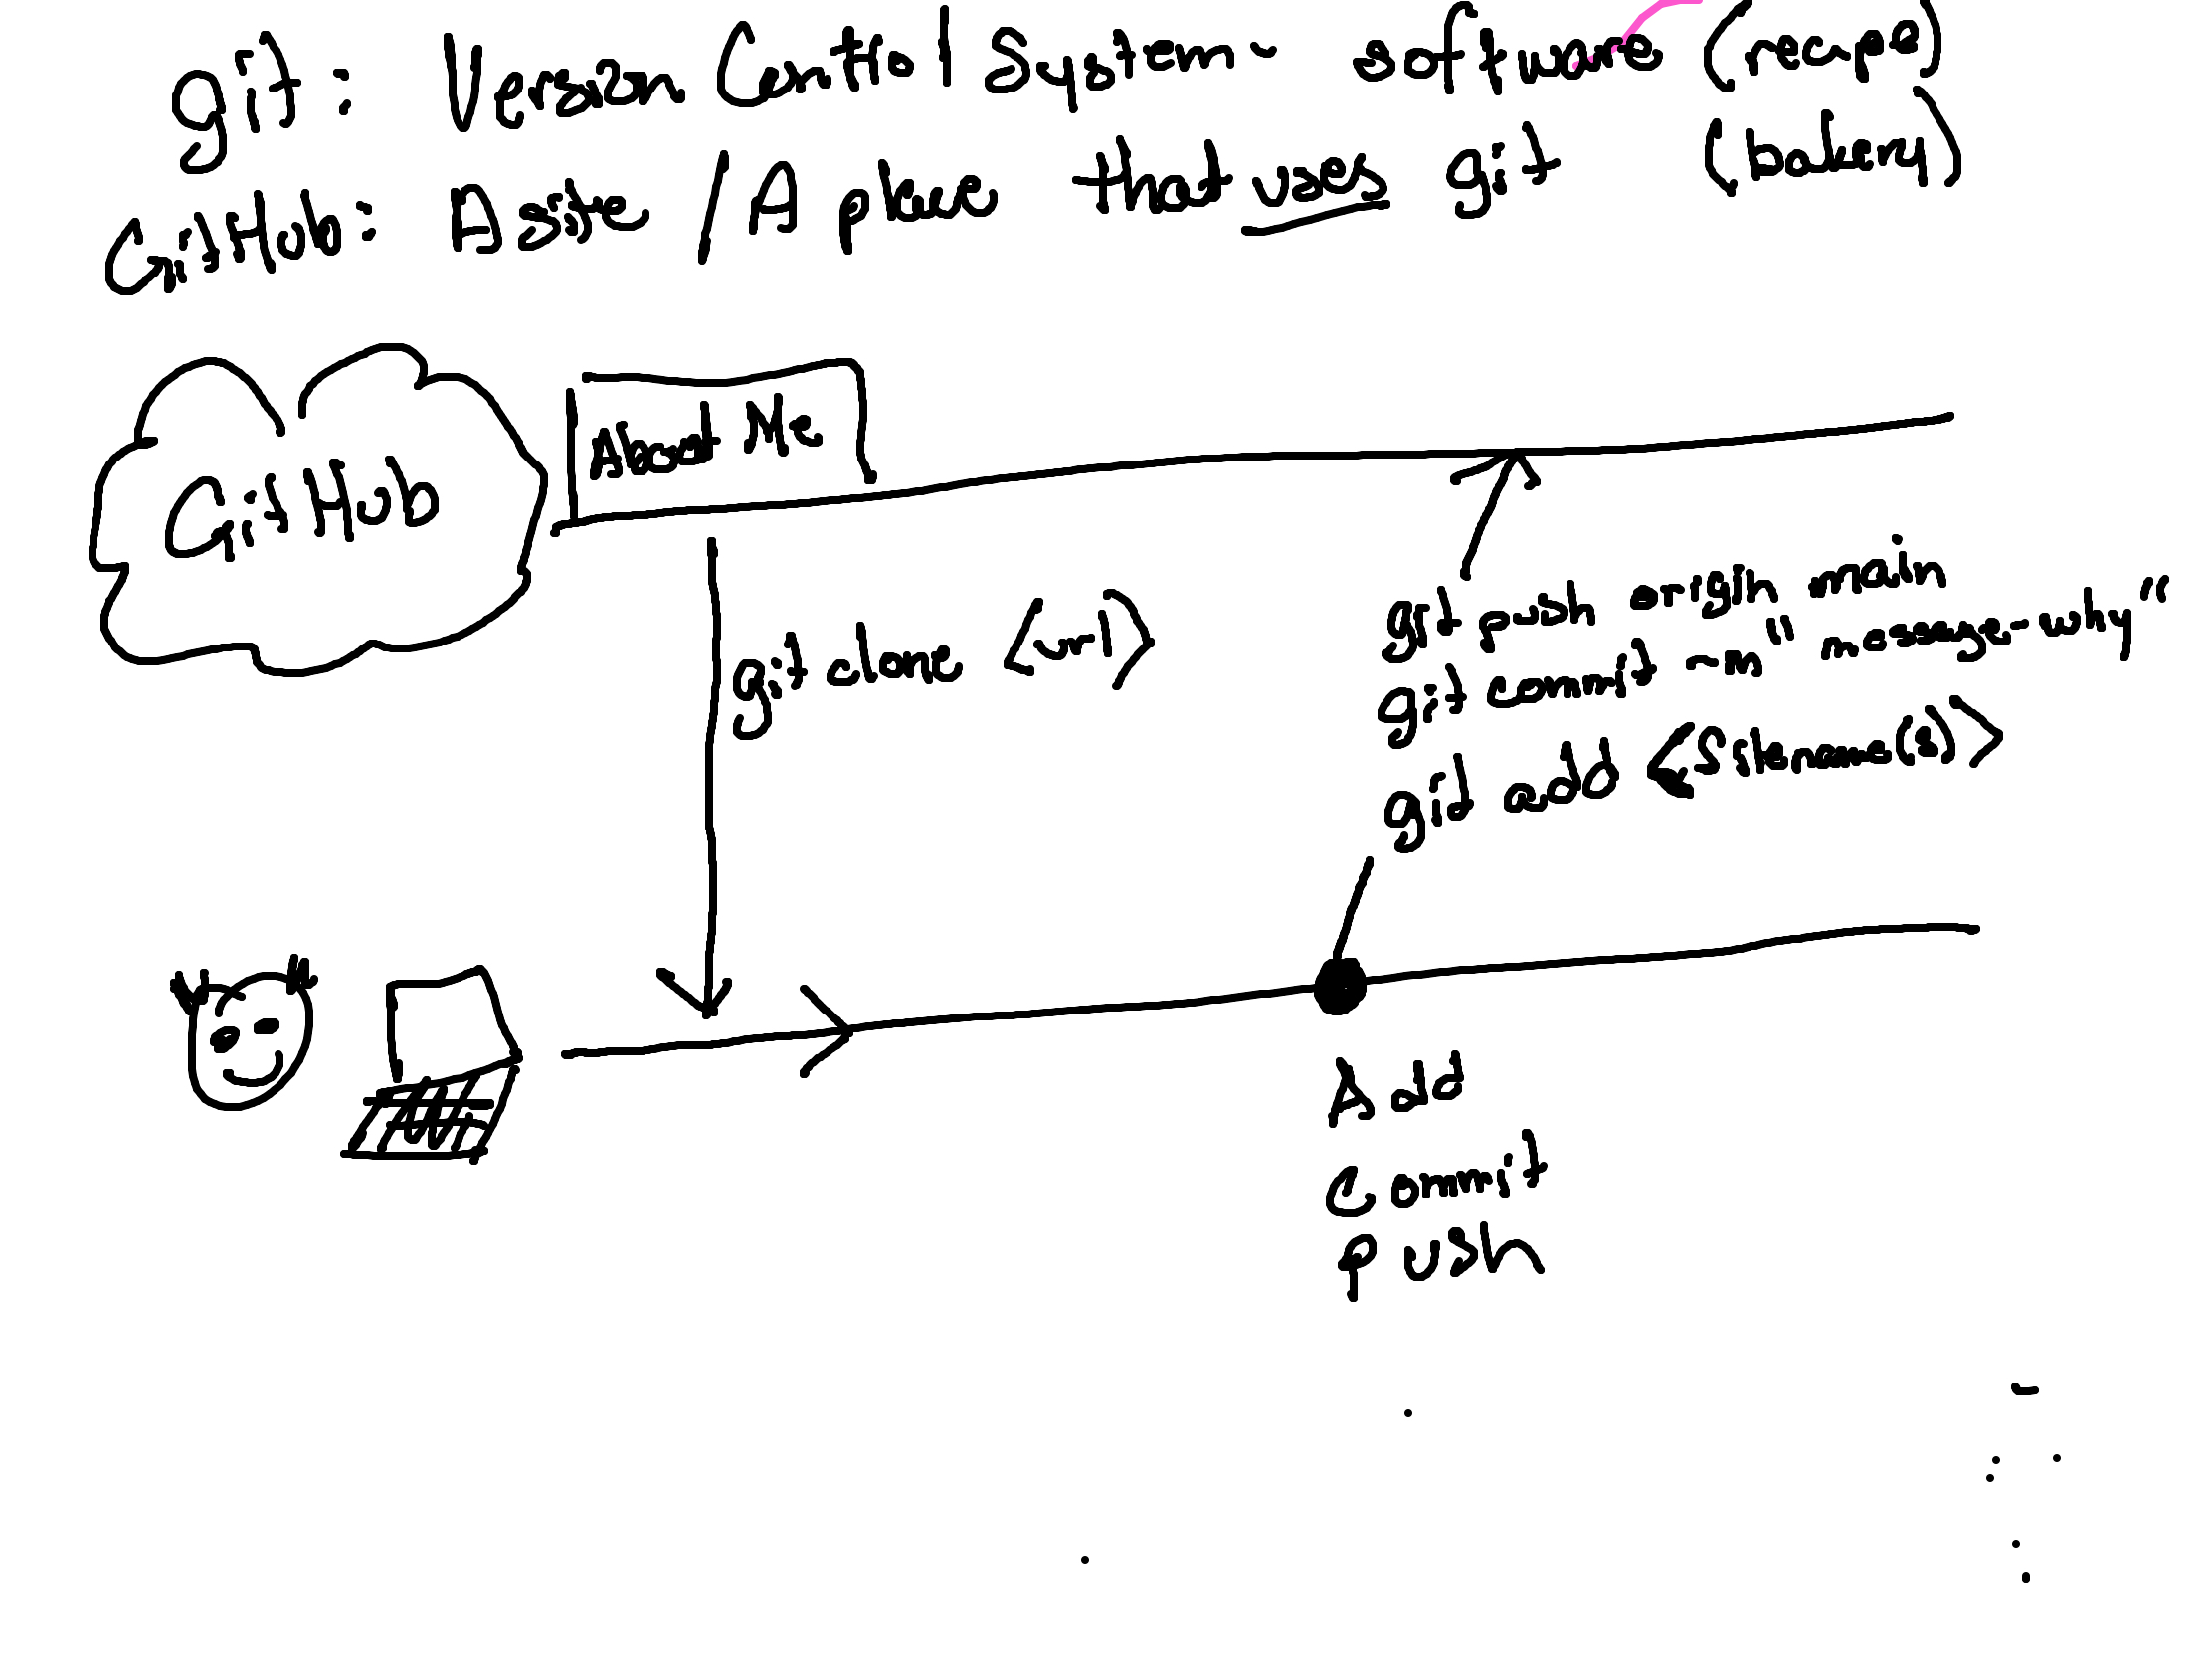 git: Version Control System - software (recipe)
GitHub: A site / A place that uses git (bakery)
About Me
GitHub
git push origin main
git clone <url>
git commit -m "message-why"
git add <filename(s)>
Add
Commit
Push